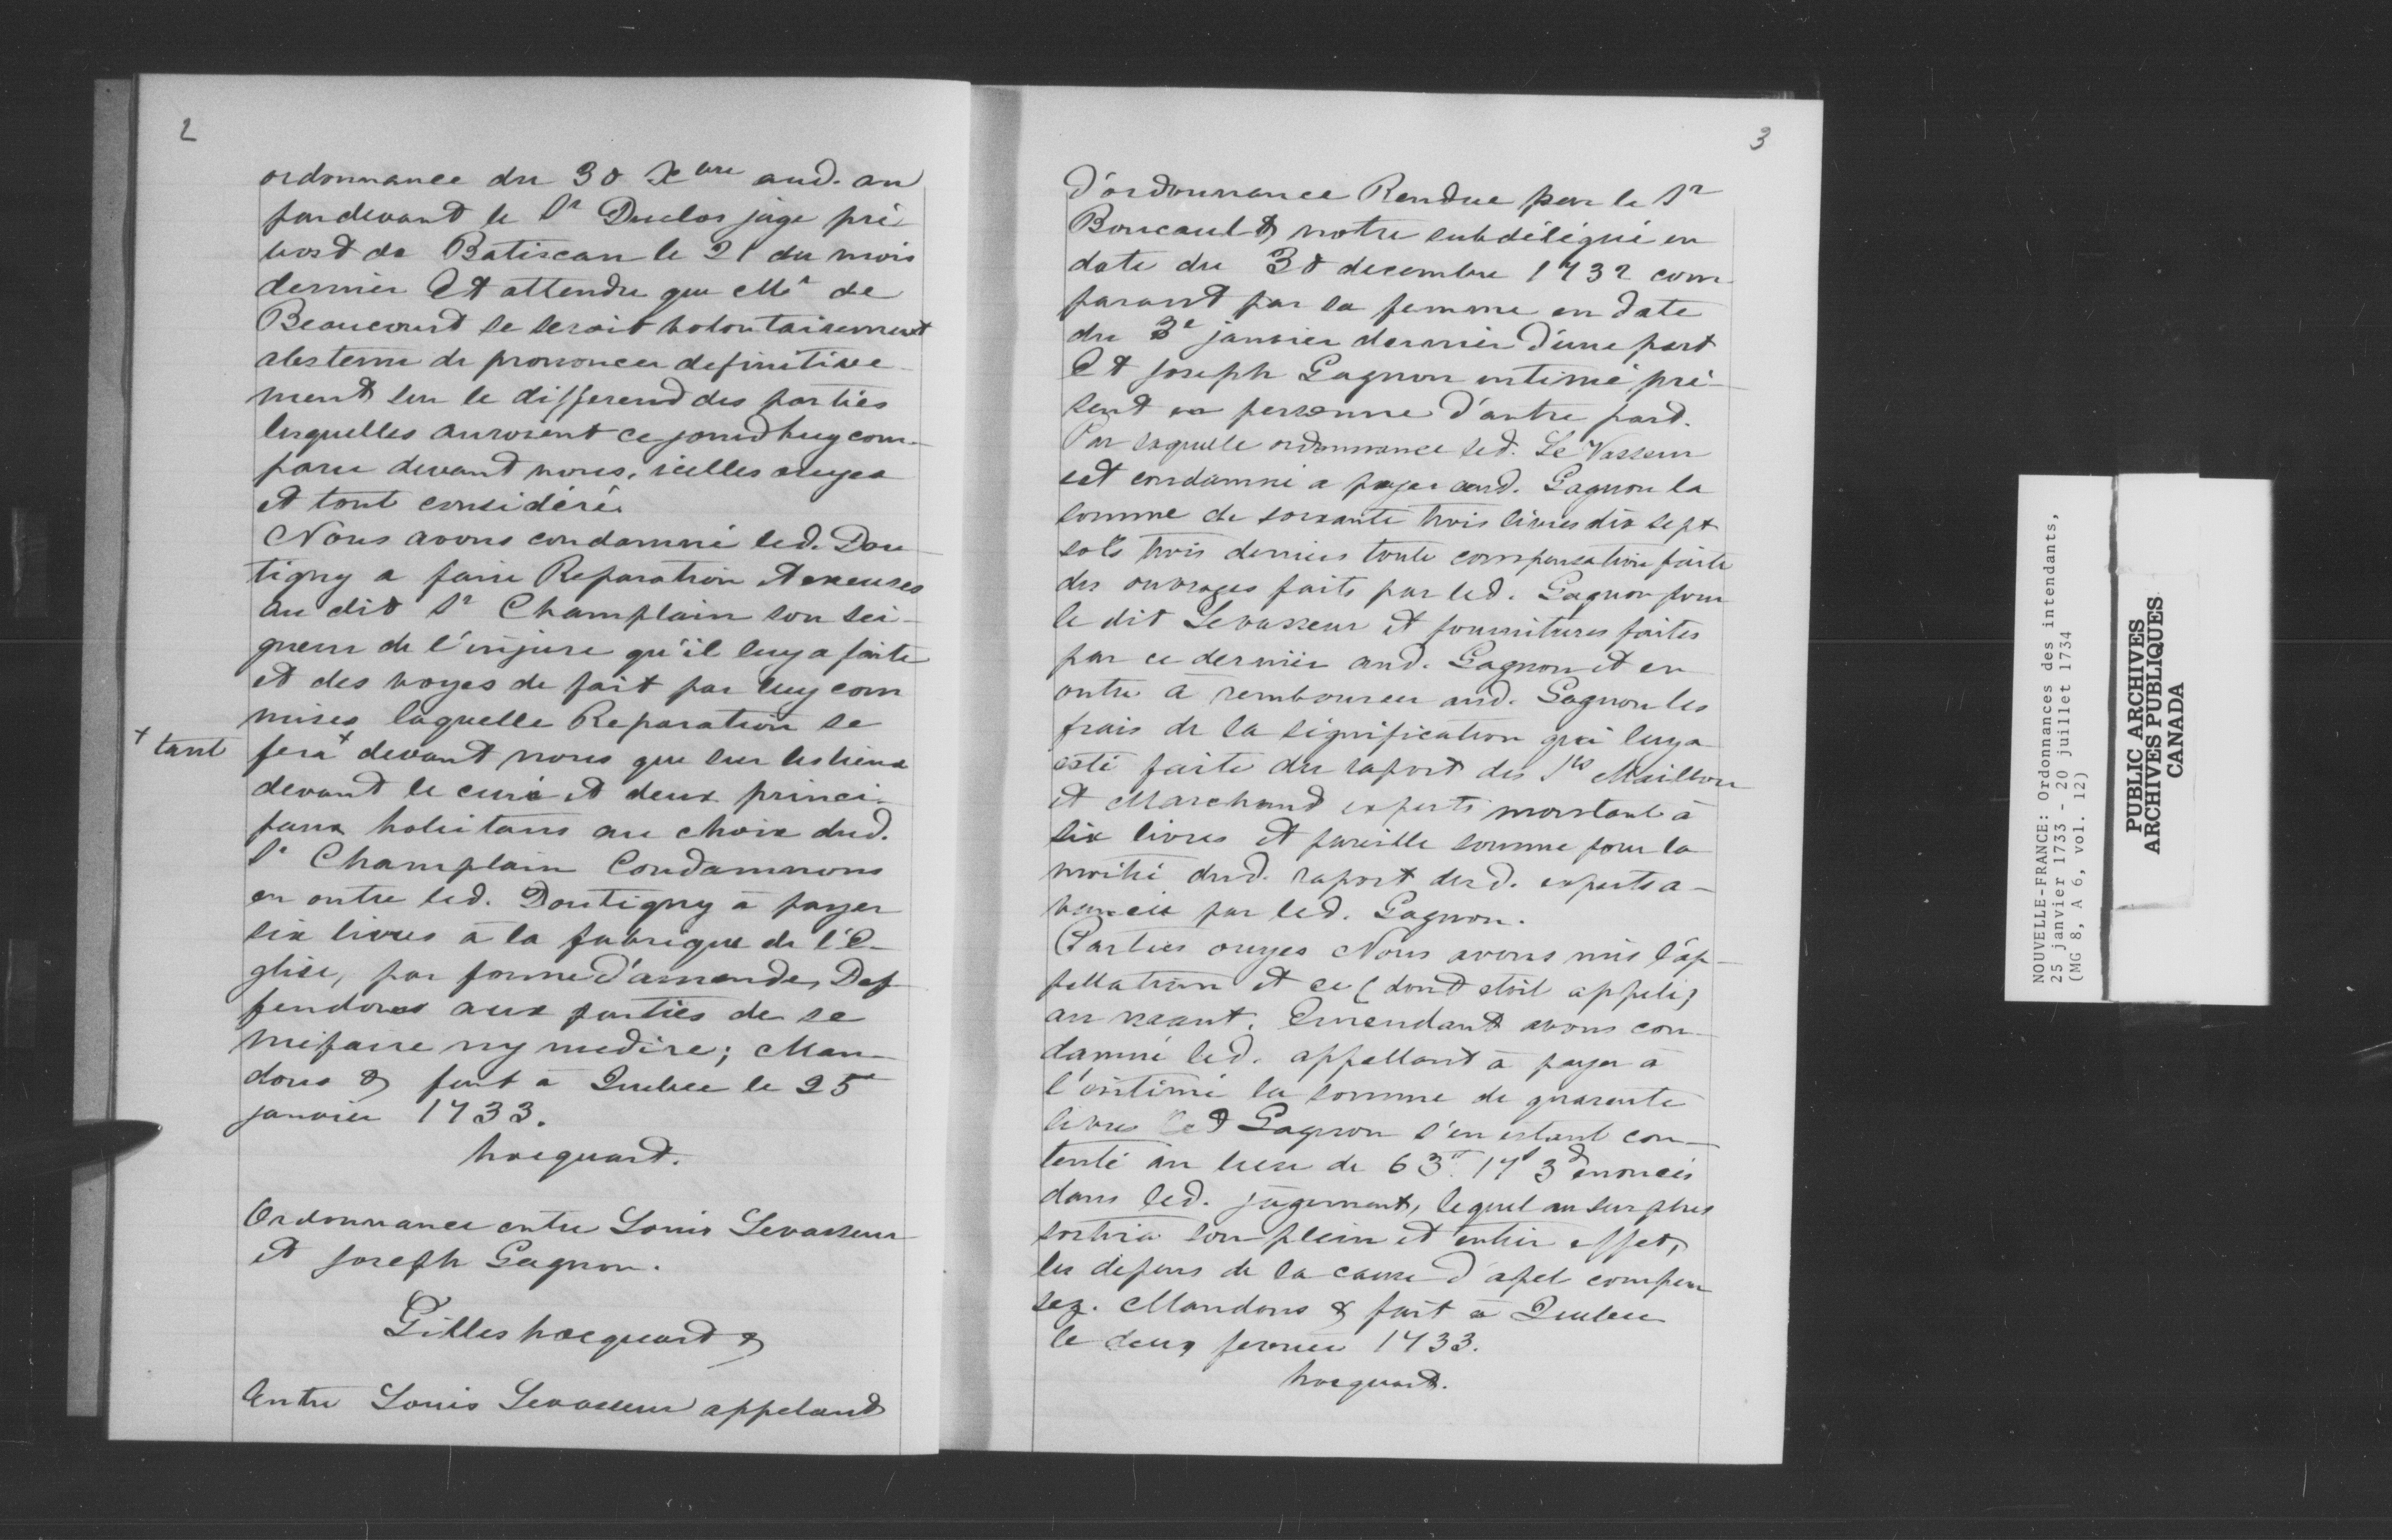 2
ordonnance du 30 Xbre aud. an
pardevant le Sr Duclos juge pré-
vost de Batiscan le 21 du mois
dernier Et attendu que Mr de
Beaucourt se seroit volontairement
abstenu de prononcer definitive-
ment sur le differend des parties
lesquelles auroient ce jourdhuy com-
paru devant nous, icelles ouyes
et tout considéré.
Nous avons condamné led. Dou-
tigny a faire Reparation et excuses
au dit Sr Champlain son sei-
gneur de l'injure qu'il luy a faite
et des voyes de fait par luy com
mises laquelle Reparation se
+ tant fera + devant nous que sur les lieux
devant le curé et deux princi-
paux habitans au choix dud.
Sr Champlain Condamnons
en outre led. Doutigny à payer
six livres à la fabrique de l'E-
glise, par forme d'amendes, Def
fendons aux parties de se
mefaire ny medire; Man-
dons & fait à Quebec le 25e
janvier 1733.
hocquart.
Ordonnance entre Louis Levasseur
et Joseph Gagnon.
Gilles hocquart &
Entre Louis Levasseur appelant
3
d'ordonnance Rendue par le Sr
Boucault, notre subdélégué en
date du 30 decembre 1732 com-
parant par sa femme en date
du 3e janvier dernier d'une part
Et Joseph Gagnon intimé pré-
sent en personne d'autre part.
Par laquelle ordonnance led. Le Vasseur
est condamné a payer aud. Gagnon la
somme de soixante trois livres dix sept
sols trois deniers toute compensation faite
des ouvrages faits par led. Gagnon pour
le dit Levasseur et fournitures faites
par ce dernier aud. Gagnon et en
outre à rembourser aud. Gagnon les
frais de la signification qui luy a
esté faite du raport des Srs Maillou
et Marchand experts montant à
six livres et pareille somme pour la
moitié dud. raport desd. experts a-
vancée par led. Gagnon.
Parties ouyes Nous avons mis l'ap-
pellation et ce (dont etoit appelé)
au neant. Emendant avons con-
damné led. appellant à payer à
l'intimé la somme de quarante
livres led Gagnon s'en estant con-
tenté au lieu de 63tt 17s 3d enoncés
dans led. jugement, lequel au surplus
sortira son plein et entier effet,
les depens de la cause d'apel compen
sez. Mandons & fait à Quebec
le deux fevrier 1733.
hocquart.
NOUVELLE-FRANCE: Ordonnances des intendants,
25 janvier 1733 - 20 juillet 1734
(MG 8, A 6, vol. 12)
PUBLIC ARCHIVES
ARCHIVES PUBLIQUES
CANADA